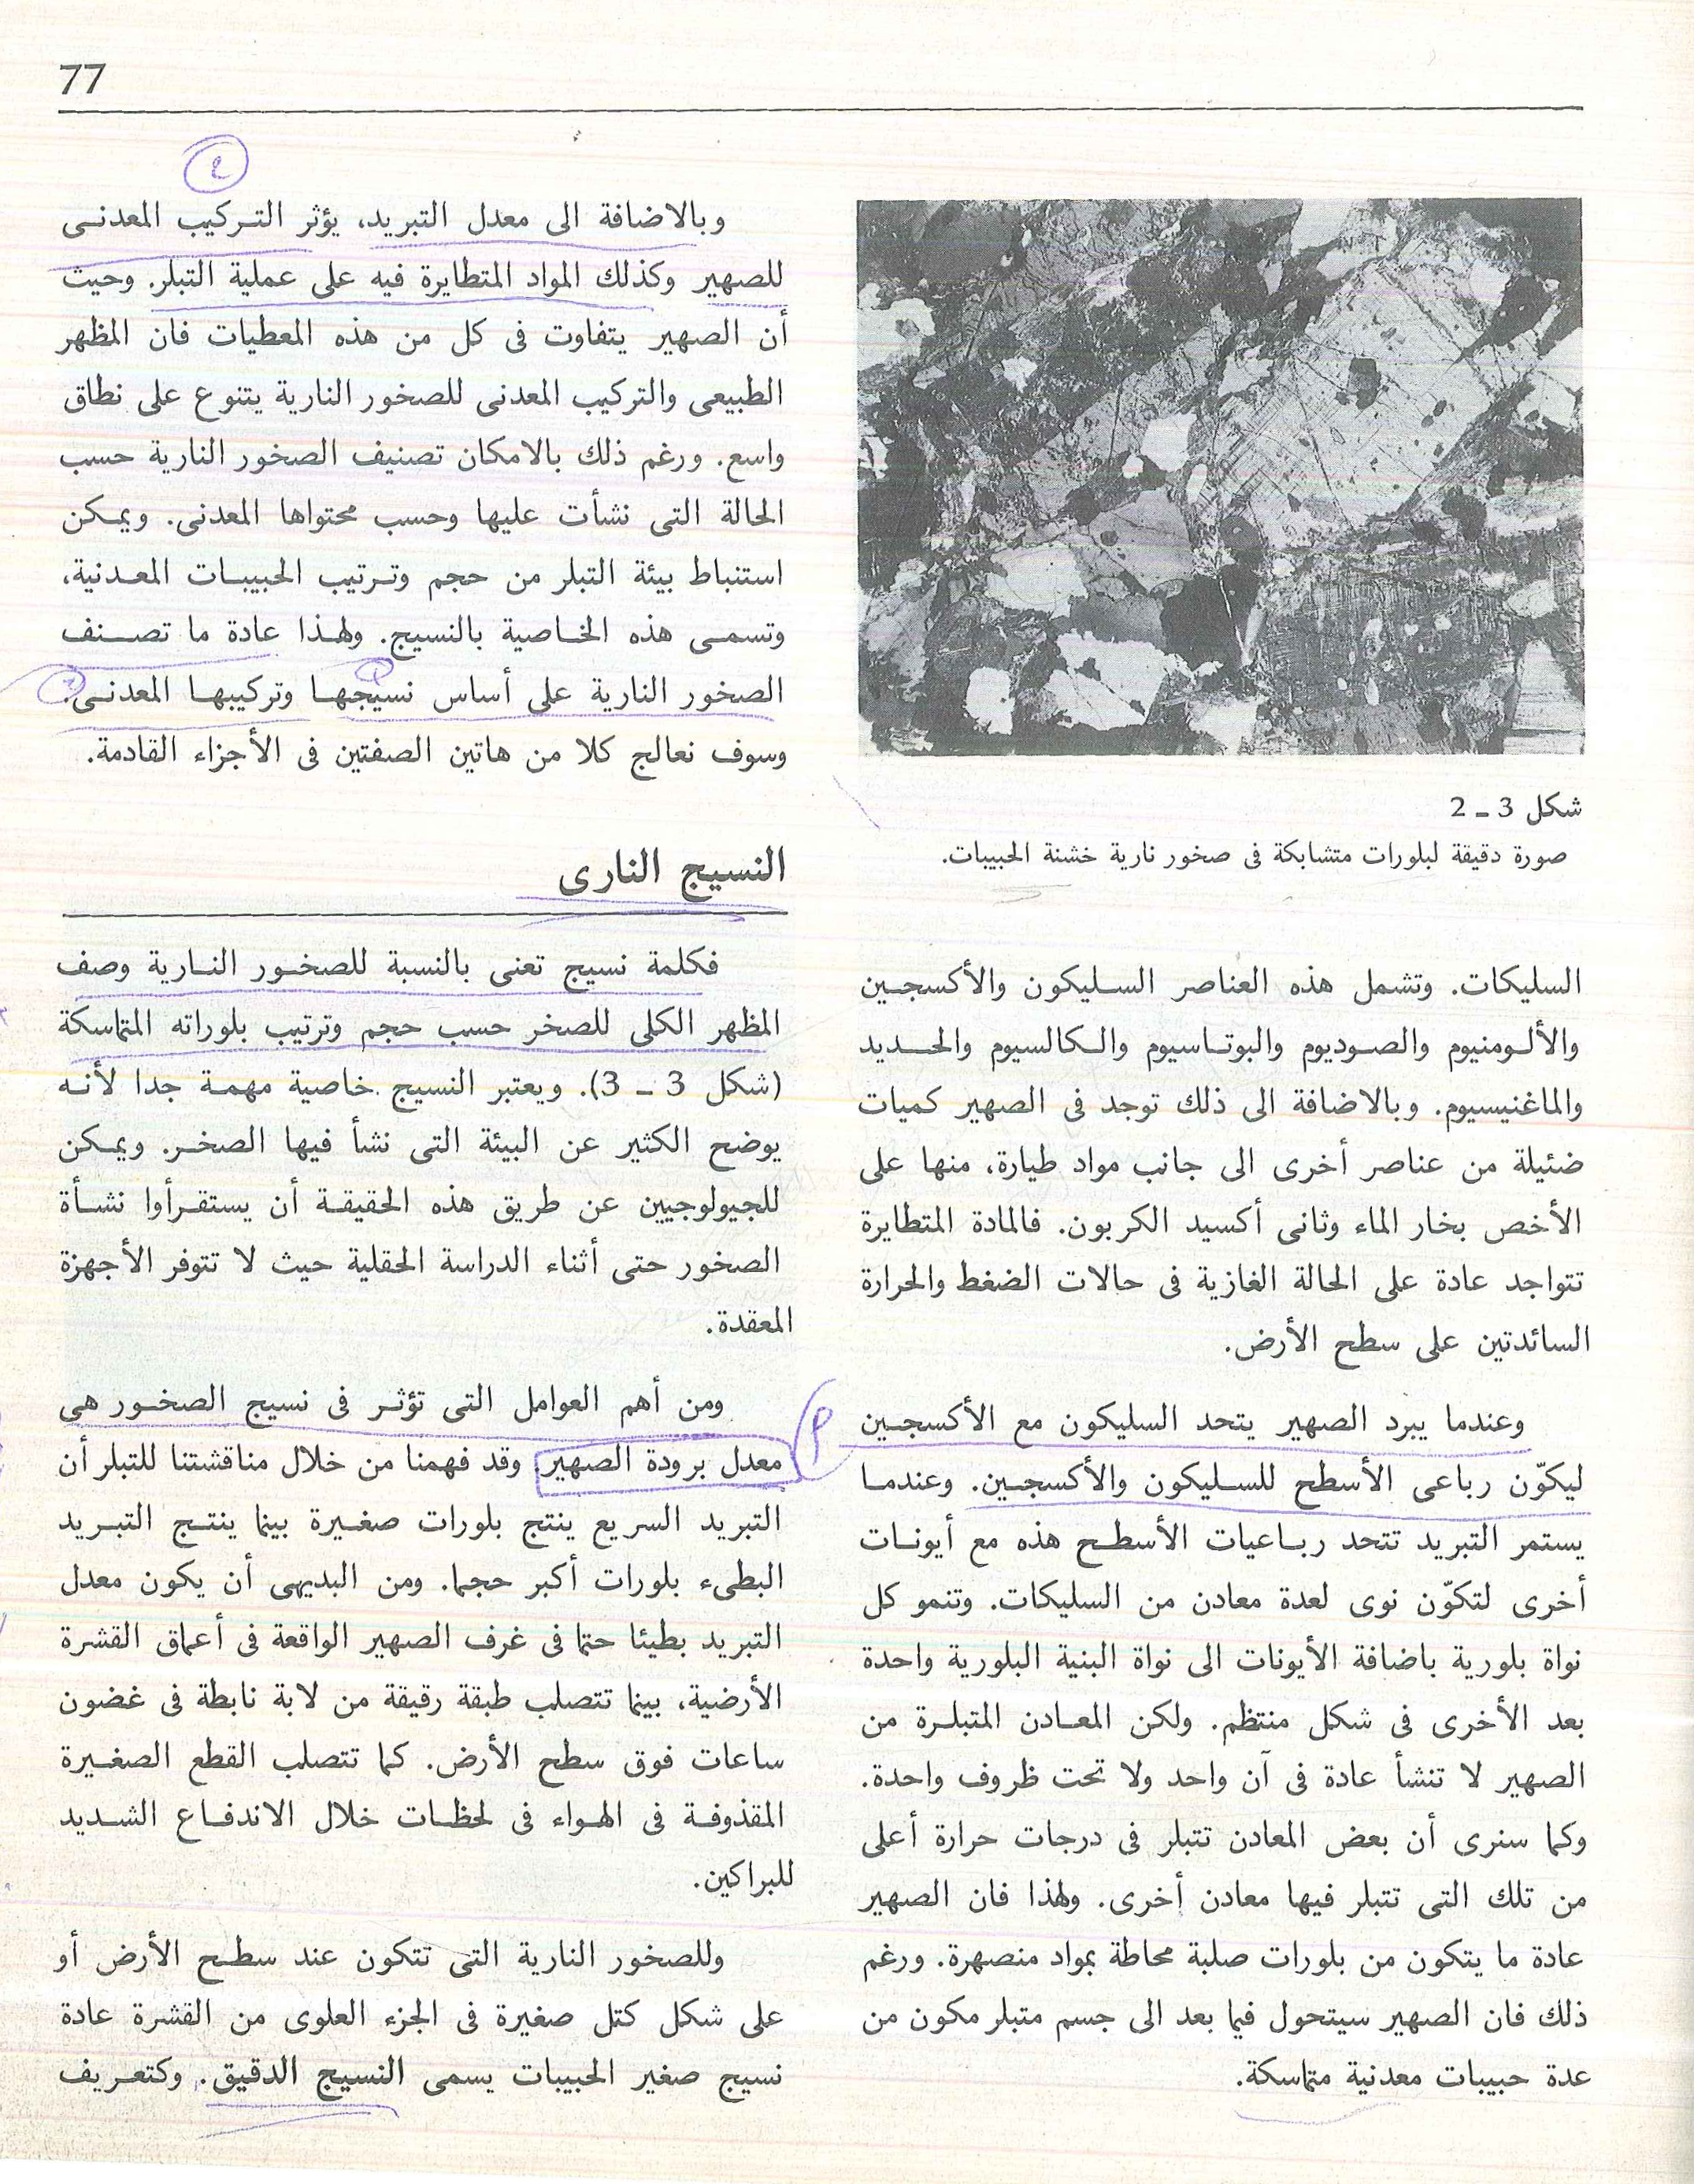 77
شكل 3 ـ 2
صورة دقيقة لبلورات متشابكة فى صخور نارية خشنة الحبيبات.
السليكات. وتشمل هذه العناصر السليكون والأكسجين
والألومنيوم والصوديوم والبوتاسيوم والكالسيوم والحديد
والماغنيسيوم. وبالاضافة الى ذلك توجد فى الصهير كميات
ضئيلة من عناصر أخرى الى جانب مواد طيارة، منها على
الأخص بخار الماء وثانى أكسيد الكربون. فالمادة المتطايرة
تتواجد عادة على الحالة الغازية فى حالات الضغط والحرارة
السائدتين على سطح الأرض.
وعندما يبرد الصهير يتحد السليكون مع الأكسجين
ليكوّن رباعى الأسطح للسليكون والأكسجين. وعندما
يستمر التبريد تتحد رباعيات الأسطح هذه مع أيونات
أخرى لتكوّن نوى لعدة معادن من السليكات. وتنمو كل
نواة بلورية باضافة الأيونات الى نواة البنية البلورية واحدة
بعد الأخرى فى شكل منتظم. ولكن المعادن المتبلرة من
الصهير لا تنشأ عادة فى آن واحد ولا تحت ظروف واحدة.
وكما سنرى أن بعض المعادن تتبلر فى درجات حرارة أعلى
من تلك التى تتبلر فيها معادن أخرى. ولهذا فان الصهير
عادة ما يتكون من بلورات صلبة محاطة بمواد منصهرة. ورغم
ذلك فان الصهير سيتحول فيما بعد الى جسم متبلر مكون من
عدة حبيبات معدنية متماسكة.
وبالاضافة الى معدل التبريد، يؤثر التركيب المعدنى
للصهير وكذلك المواد المتطايرة فيه على عملية التبلر. وحيث
أن الصهير يتفاوت فى كل من هذه المعطيات فان المظهر
الطبيعى والتركيب المعدنى للصخور النارية يتنوع على نطاق
واسع. ورغم ذلك بالامكان تصنيف الصخور النارية حسب
الحالة التى نشأت عليها وحسب محتواها المعدنى. ويمكن
استنباط بيئة التبلر من حجم وترتيب الحبيبات المعدنية،
وتسمى هذه الخاصية بالنسيج. ولهذا عادة ما تصنف
الصخور النارية على أساس نسيجها وتركيبها المعدنى.
وسوف نعالج كلا من هاتين الصفتين فى الأجزاء القادمة.
النسيج النارى
فكلمة نسيج تعنى بالنسبة للصخور النارية وصف
المظهر الكلى للصخر حسب حجم وترتيب بلوراته المتماسكة
(شكل 3 ـ 3). ويعتبر النسيج خاصية مهمة جدا لأنه
يوضح الكثير عن البيئة التى نشأ فيها الصخر. ويمكن
للجيولوجيين عن طريق هذه الحقيقة أن يستقرأوا نشأة
الصخور حتى أثناء الدراسة الحقلية حيث لا تتوفر الأجهزة
المعقدة.
ومن أهم العوامل التى تؤثر فى نسيج الصخور هى
معدل برودة الصهير. وقد فهمنا من خلال مناقشتنا للتبلر أن
التبريد السريع ينتج بلورات صغيرة بينما ينتج التبريد
البطىء بلورات أكبر حجما. ومن البديهى أن يكون معدل
التبريد بطيئا حتما فى غرف الصهير الواقعة فى أعماق القشرة
الأرضية، بينما تتصلب طبقة رقيقة من لابة نابطة فى غضون
ساعات فوق سطح الأرض. كما تتصلب القطع الصغيرة
المقذوفة فى الهواء فى لحظات خلال الاندفاع الشديد
للبراكين.
وللصخور النارية التى تتكون عند سطح الأرض أو
على شكل كتل صغيرة فى الجزء العلوى من القشرة عادة
نسيج صغير الحبيبات يسمى النسيج الدقيق. وكتعريف